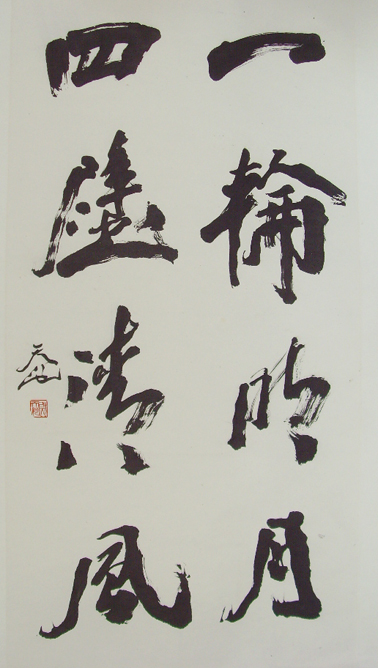 一輪明月
四壁清風